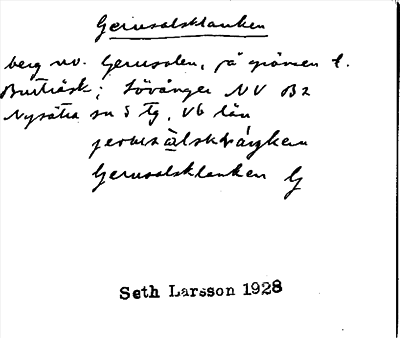 Gerusalsklanken
berg nv. Gerusalen, på gränsen t.
Burträsk; Lövånger NV B2
Nysätra sn S tg, Vb län
Gerusalsklanken G
Seth Larsson 1928